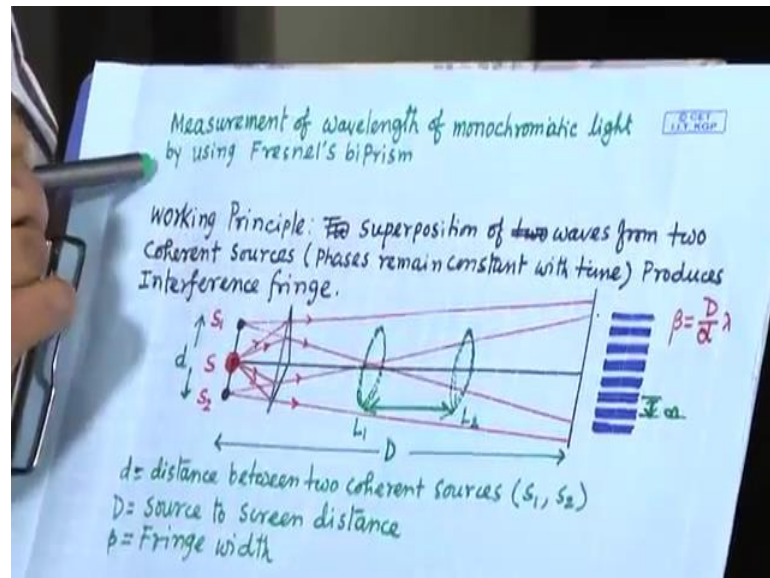 Measurement of wavelength of monochromatic light
© CET
I.I.T. KGP
by using Fresnel's biprism
Working Principle: superposition of waves from two
Coherent Sources (Phases remain constant with time) Produces
Interference fringe.
S1
d
S
S2
L1
L2
D
β = D/d λ
β
d = distance between two coherent sources (S1, S2)
D = Source to screen distance
β = Fringe width